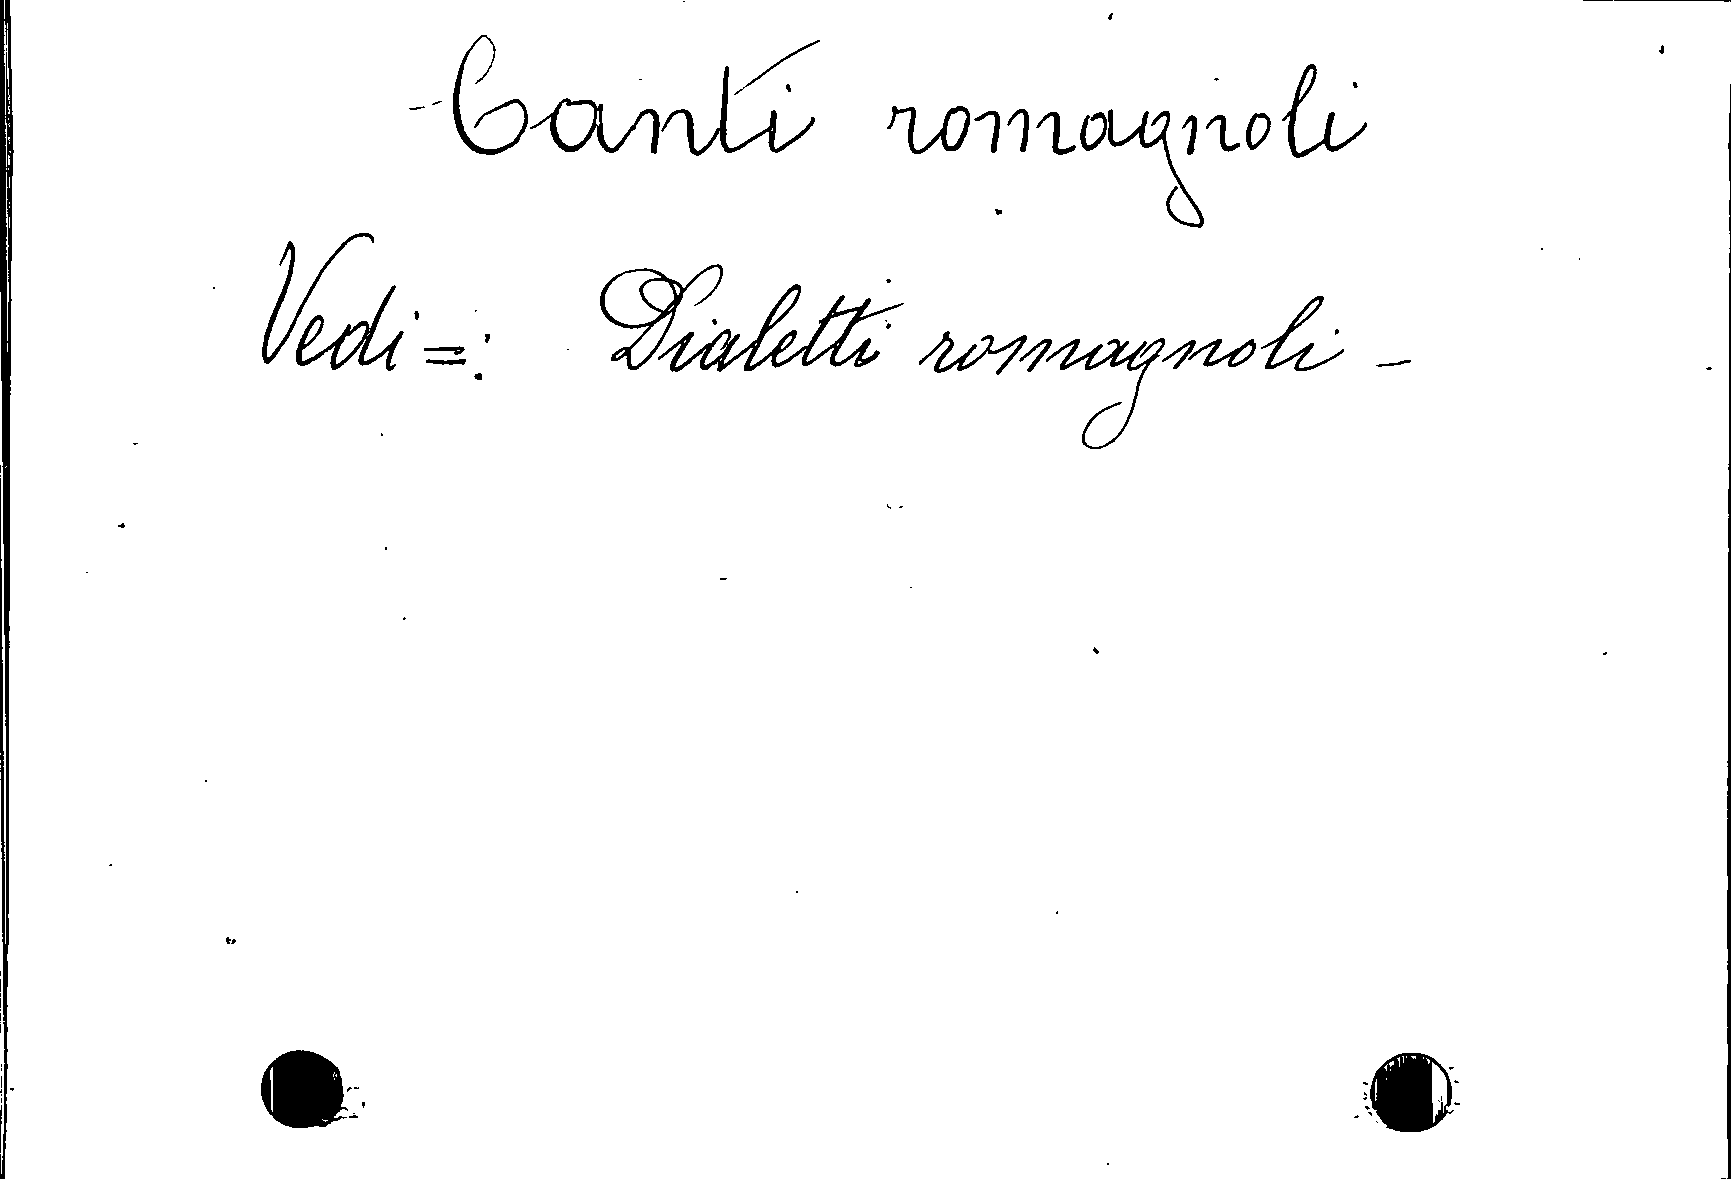 Canti romagnoli
Vedi=: Dialetti romagnoli -